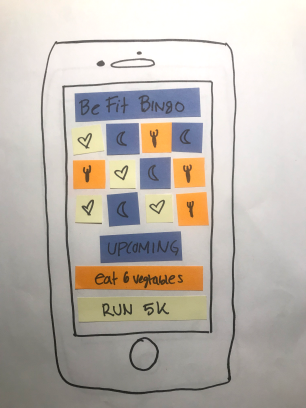 Be Fit Bingo
UPCOMING
eat 6 vegtables
RUN 5K